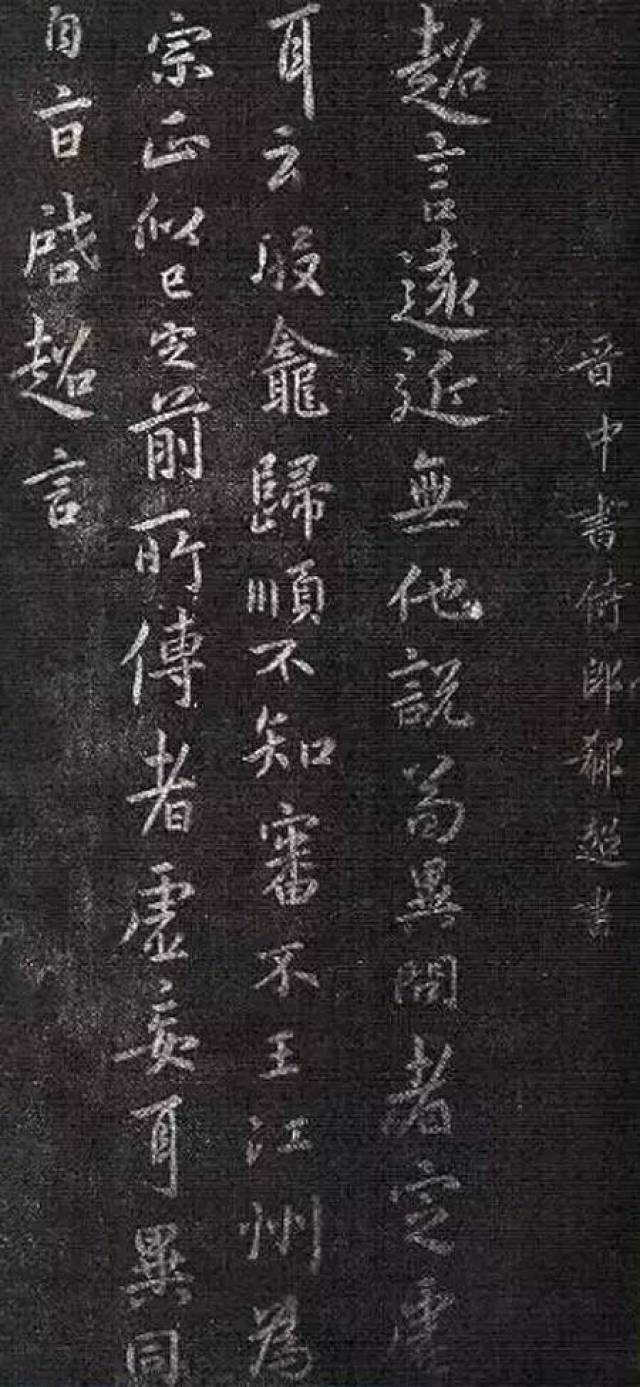 晉中書侍郎郗超書
超言遠近無他説前異問者定虛
耳云段龕歸順不知審不王江州為
宗正似已定前所傳者虛妄耳異同
自旨啓超言